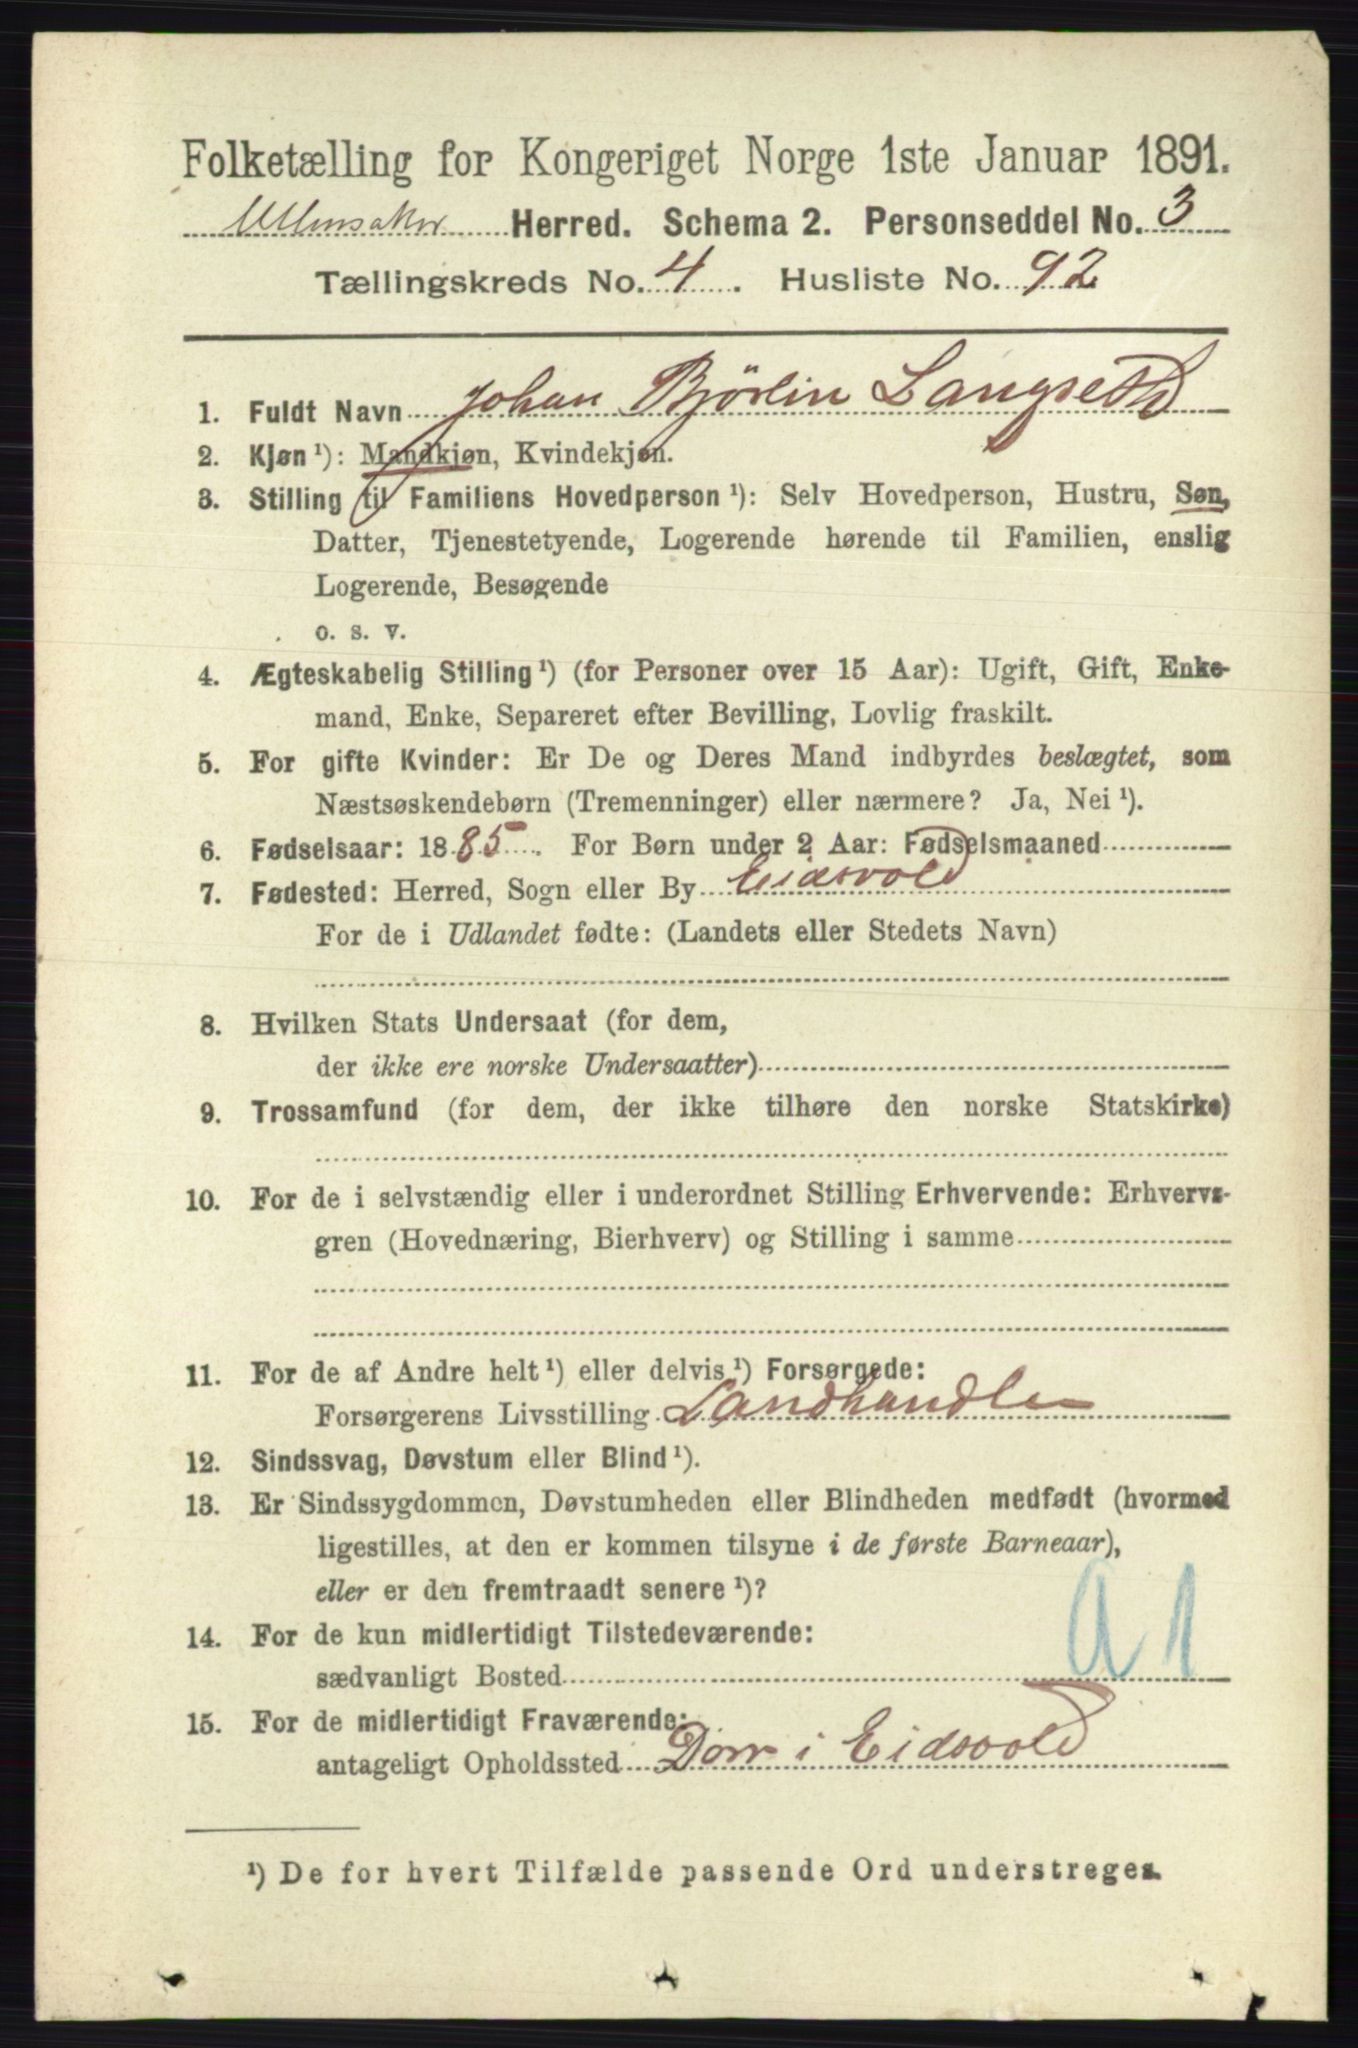 Folketælling for Kongeriget Norge 1ste Januar 1891.
Ullensaker Herred. Schema 2. Personseddel No. 3
Tællingskreds No. 4. Husliste No. 92
1. Fuldt Navn Johan Bjørlin Langseth
2. Kjøn ¹): Mandkjøn, Kvindekjøn.
3. Stilling til Familiens Hovedperson ¹): Selv Hovedperson, Hustru, Søn,
Datter, Tjenestetyende, Logerende hørende til Familien, enslig
Logerende, Besøgende
o. s. v.
4. Ægteskabelig Stilling ¹) (for Personer over 15 Aar): Ugift, Gift, Enke-
mand, Enke, Separeret efter Bevilling, Lovlig fraskilt.
5. For gifte Kvinder: Er De og Deres Mand indbyrdes beslægtet, som
Næstsøskendebørn (Tremenninger) eller nærmere? Ja, Nei ¹).
6. Fødselsaar: 1885. For Børn under 2 Aar: Fødselsmaaned
7. Fødested: Herred, Sogn eller By Eidsvold
For de i Udlandet fødte: (Landets eller Stedets Navn)
8. Hvilken Stats Undersaat (for dem,
der ikke ere norske Undersaatter)
9. Trossamfund (for dem, der ikke tilhøre den norske Statskirke)
10. For de i selvstændig eller i underordnet Stilling Erhvervende: Erhvervs-
gren (Hovednæring, Bierhverv) og Stilling i samme
11. For de af Andre helt ¹) eller delvis ¹) Forsørgede:
Forsørgerens Livsstilling Landhandler
12. Sindssvag, Døvstum eller Blind ¹).
13. Er Sindssygdommen, Døvstumheden eller Blindheden medfødt (hvormed
ligestilles, at den er kommen tilsyne i de første Barneaar),
eller er den fremtraadt senere ¹)?
a 1
14. For de kun midlertidigt Tilstedeværende:
sædvanligt Bosted
15. For de midlertidigt Fraværende:
antageligt Opholdssted Dorr i Eidsvold
¹) De for hvert Tilfælde passende Ord understreges.